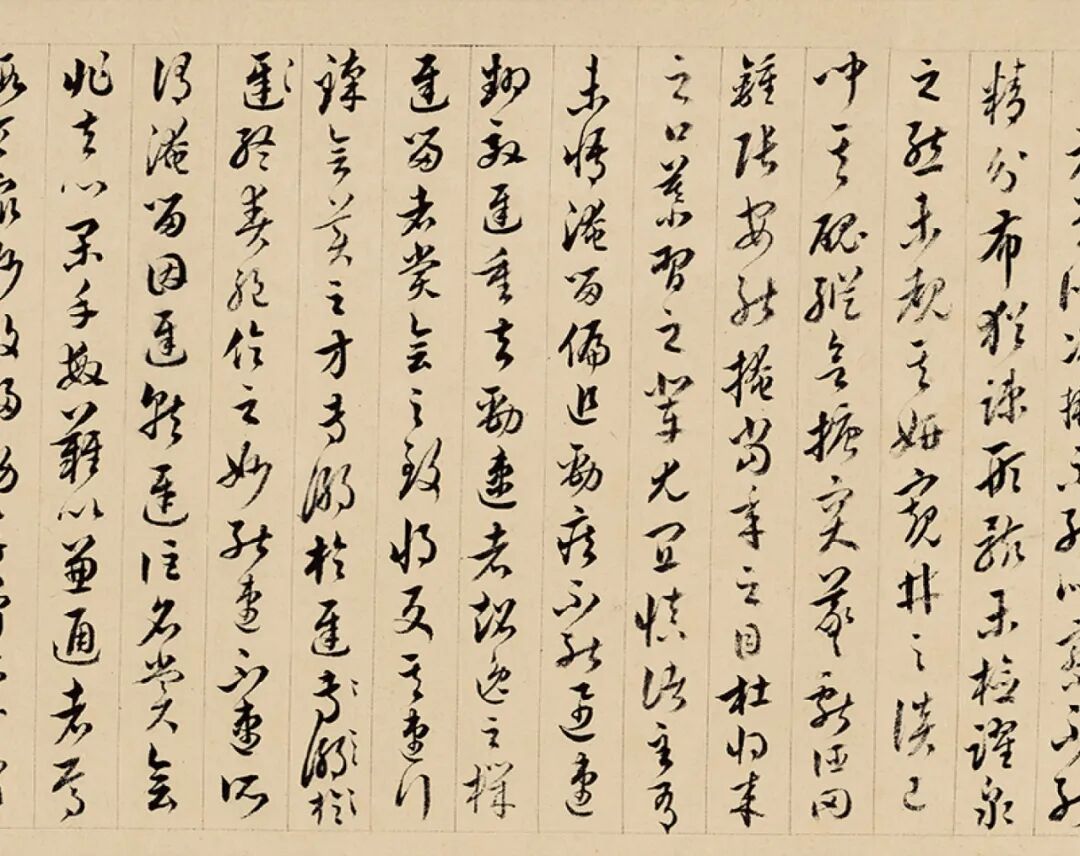 精分布猶疎形骸未檢躍泉
之態未覩其妍窺井之談已
聞其醜縱欲搪突羲獻誣罔
鍾張安能掩當年之目杜將来
之口慕習之輩尤宜慎諸至有
未悟淹留偏追勁疾不能迅速
翻效遲重夫勁速者超逸之機
遲留者賞會之致將反其速行
臻會美之方專溺於遲專溺於
遲終爽絶倫之妙能速不速所
謂淹留因遲就遲詎名賞會
非夫心閑手敏難以兼通者焉